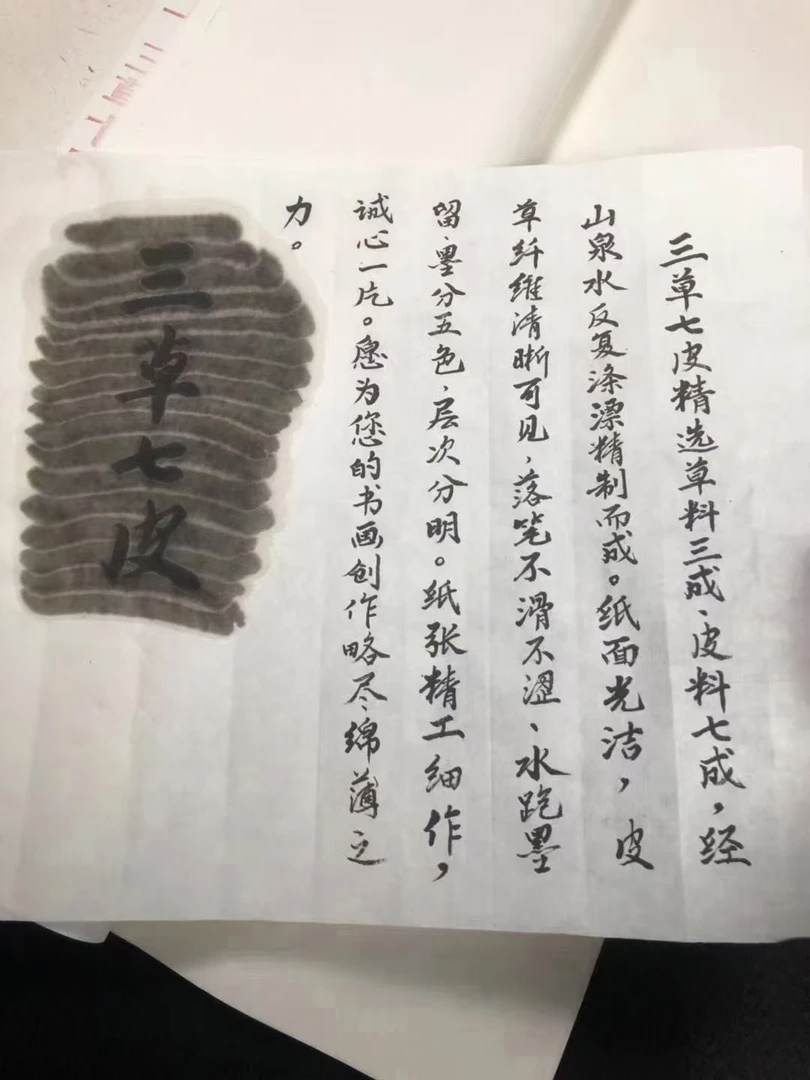 三草七皮精选草料三成、皮料七成，经
山泉水反复涤漂精制而成。纸面光洁，皮
草纤维清晰可见，落笔不滑不涩、水跑墨
留、墨分五色，层次分明。纸张精工细作，
诚心一片。愿为您的书画创作略尽绵薄之
力。
三草七皮